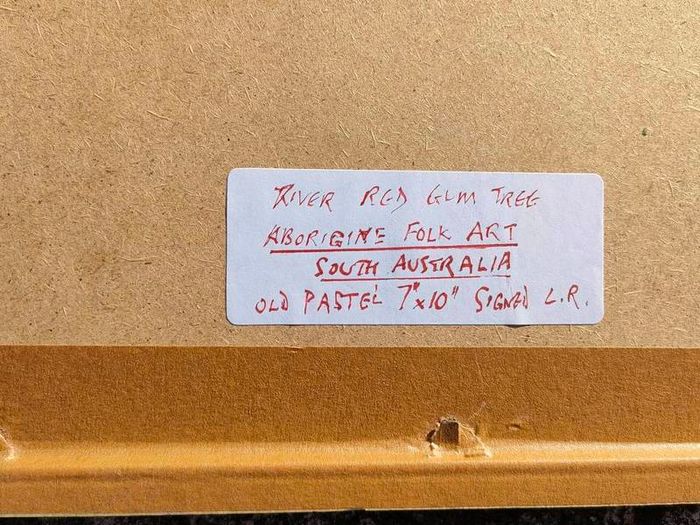 RIVER RED GUM TREE
ABORIGINE FOLK ART
SOUTH AUSTRALIA
OLD PASTEL 7"x10" SIGNED L.R.